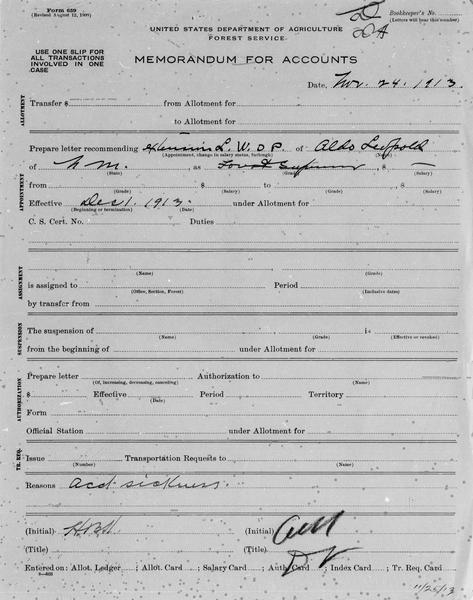 Form 659
(Revised August 12, 1909)
Bookkeeper's No.
(Letters will bear this number)
UNITED STATES DEPARTMENT OF AGRICULTURE
FOREST SERVICE
USE ONE SLIP FOR
ALL TRANSACTIONS
INVOLVED IN ONE
CASE
MEMORANDUM FOR ACCOUNTS
Date, Nov. 24. 1913.
ALLOTMENT
Transfer $ from Allotment for
to Allotment for
APPOINTMENT
Prepare letter recommending extension L. W. O P. of Aldo Leopold
(Appointment, change in salary status, furlough) (Name)
of N M. as Forest Supervisor, $ —
(State) (Grade) (Salary)
from , $ to , $
(Grade) (Salary) (Grade) (Salary)
Effective Dec 1. 1913. under Allotment for
(Beginning or termination) (Date)
C. S. Cert. No. Duties
ASSIGNMENT
(Name) (Grade)
is assigned to Period
(Office, Section, Forest) (Inclusive dates)
by transfer from
SUSPENSION
The suspension of is
(Name) (Grade) (Effective or revoked)
from the beginning of under Allotment for
AUTHORIZATION
Prepare letter Authorization to
(Of, increasing, decreasing, canceling) (Name)
$ Effective Period Territory
(Date)
Form
Official Station under Allotment for
TR. REQ.
Issue Transportation Requests to
(Number) (Name)
Reasons acct sickness.
(Initial) (Initial)
(Title) (Title)
Entered on: Allot. Ledger ; Allot. Card ; Salary Card ; Auth. Card ; Index Card ; Tr. Req. Card
11/25/13